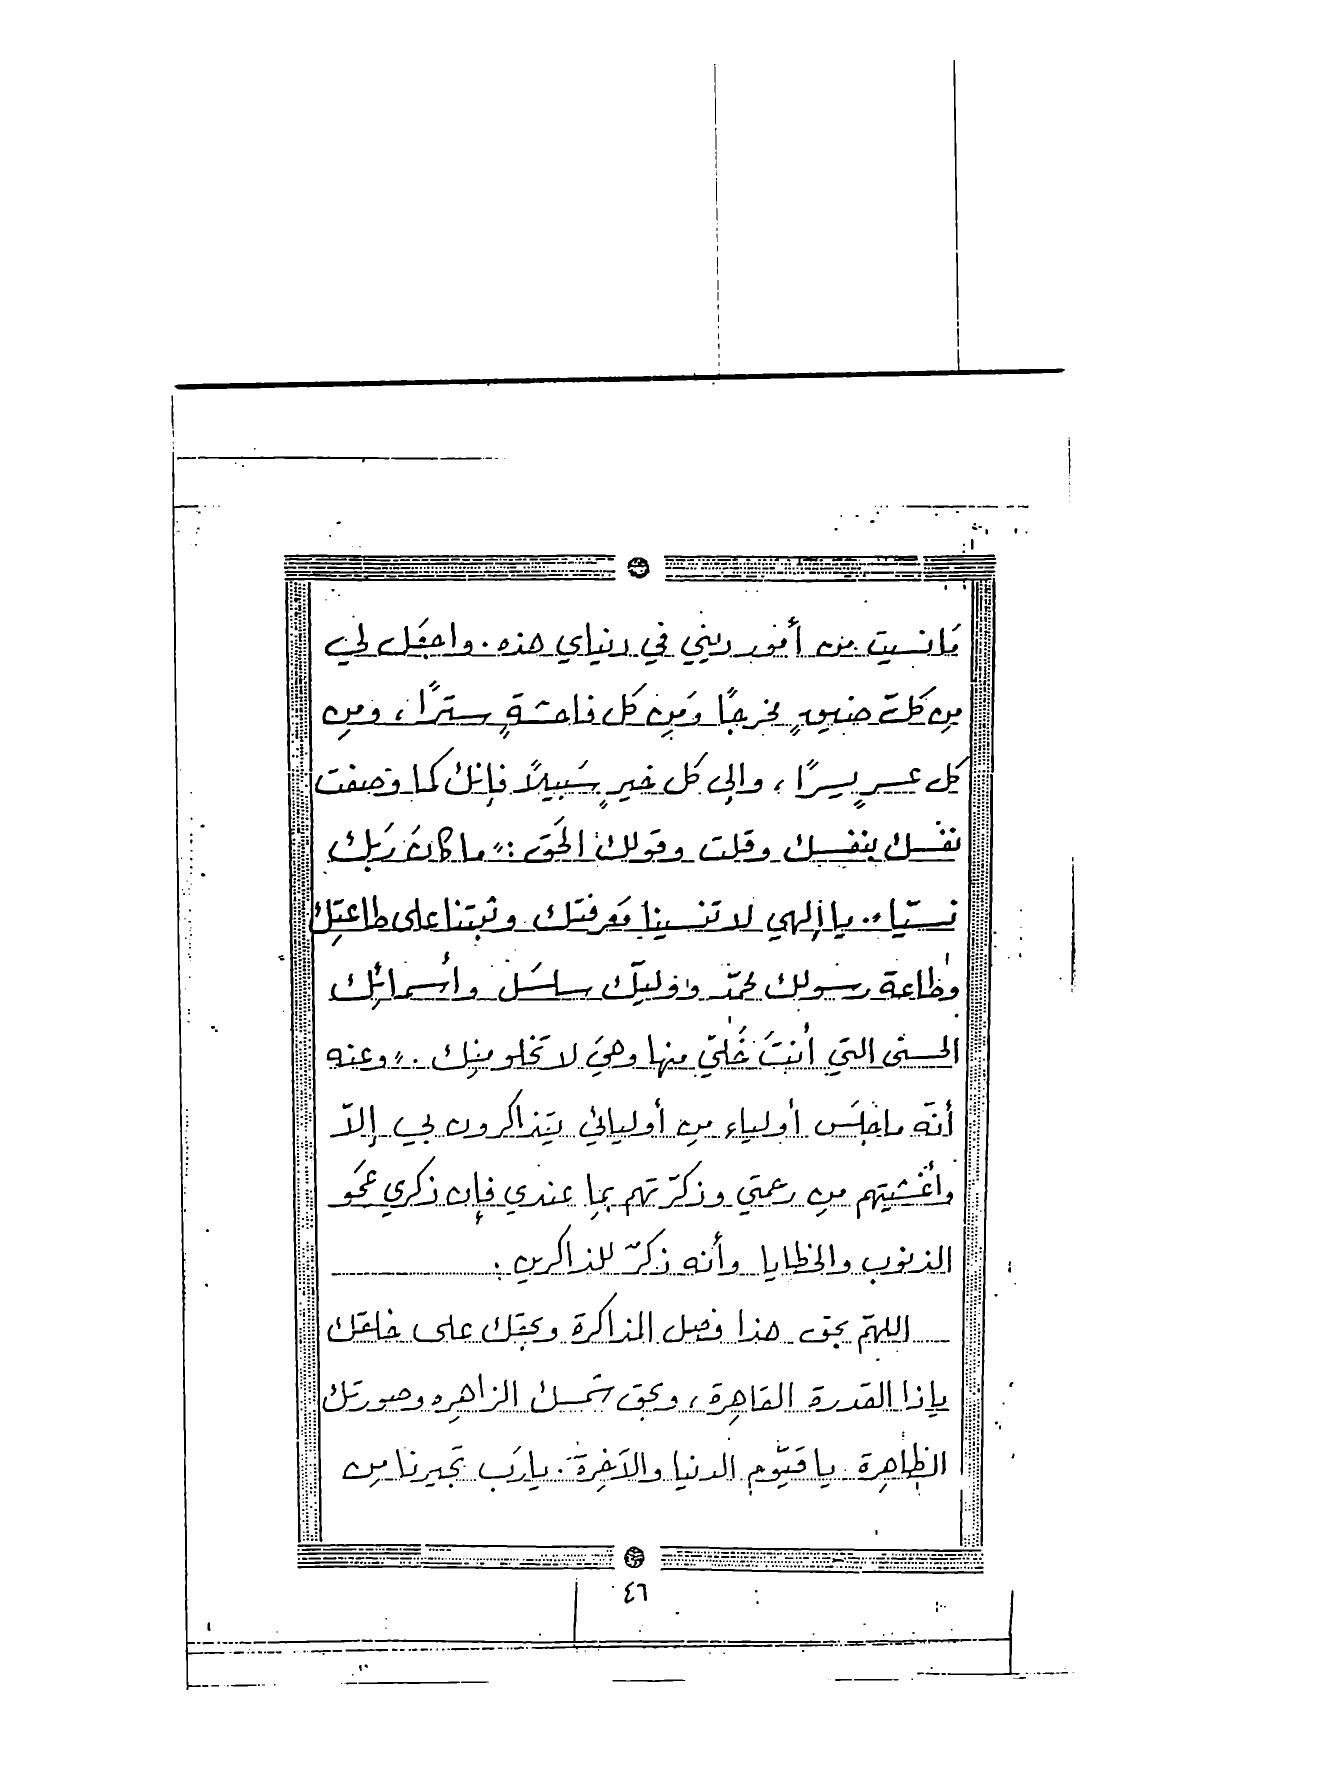 مَا نسيت من أمور ديني في دنياي هذه. واجعَل لي
من كلّ ضيقٍ مخرجًا وَمن كل فاحشةٍ سترًا، ومن
كل عسرٍ يسرًا، وإلى كل خيرٍ سَبيلاً فإنك كما وَصفت
نفسك بنفسك وقلت وقولك الحَق: "ما كانَ رَبك
نسيّاً". يا إلهي لا تنسينا مَعرفتك وثبتنا على طاعتِك
وطاعة رسولك محمّد وَوَليّك سلسَل وأسمائِك
الحسنى التي أنتَ خَليّ منها وهيَ لا تخلو منِك. "وعنه
أنّه ما جلَس أولياء من أوليائي يتذاكرون بي إلاّ
وأغشيتهم من رحمتي وذكرّتهم بما عندي فإن ذكري يمحَو
الذنوب والخطايا وأنه ذكرّ للذاكرين.
اللهمّ بحق هذا فصل المذاكرة وبحقك على خلقك
ياذا القدرة القاهِرة، وبحق شمسك الزاهره وصورتك
الظاهِرة يا قيّوم الدنيا والآخِرة. يارَب تجيرنا من
٤٦